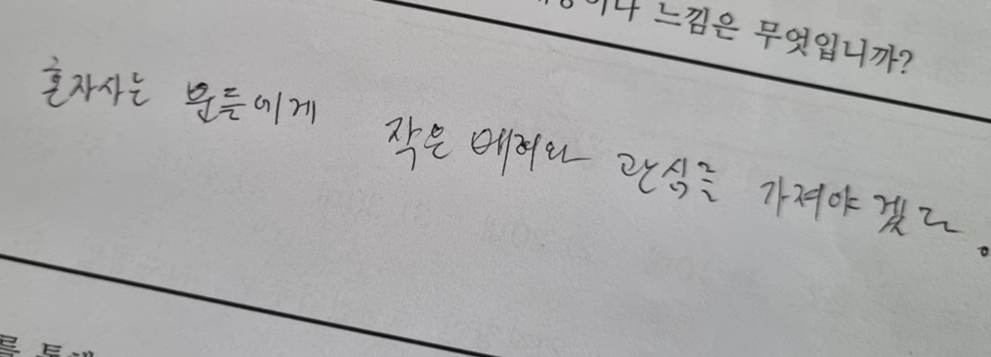 느낌은 무엇입니까?
혼자사는 분들에게 작은 배려와 관심을 가져야겠다.
를 통해